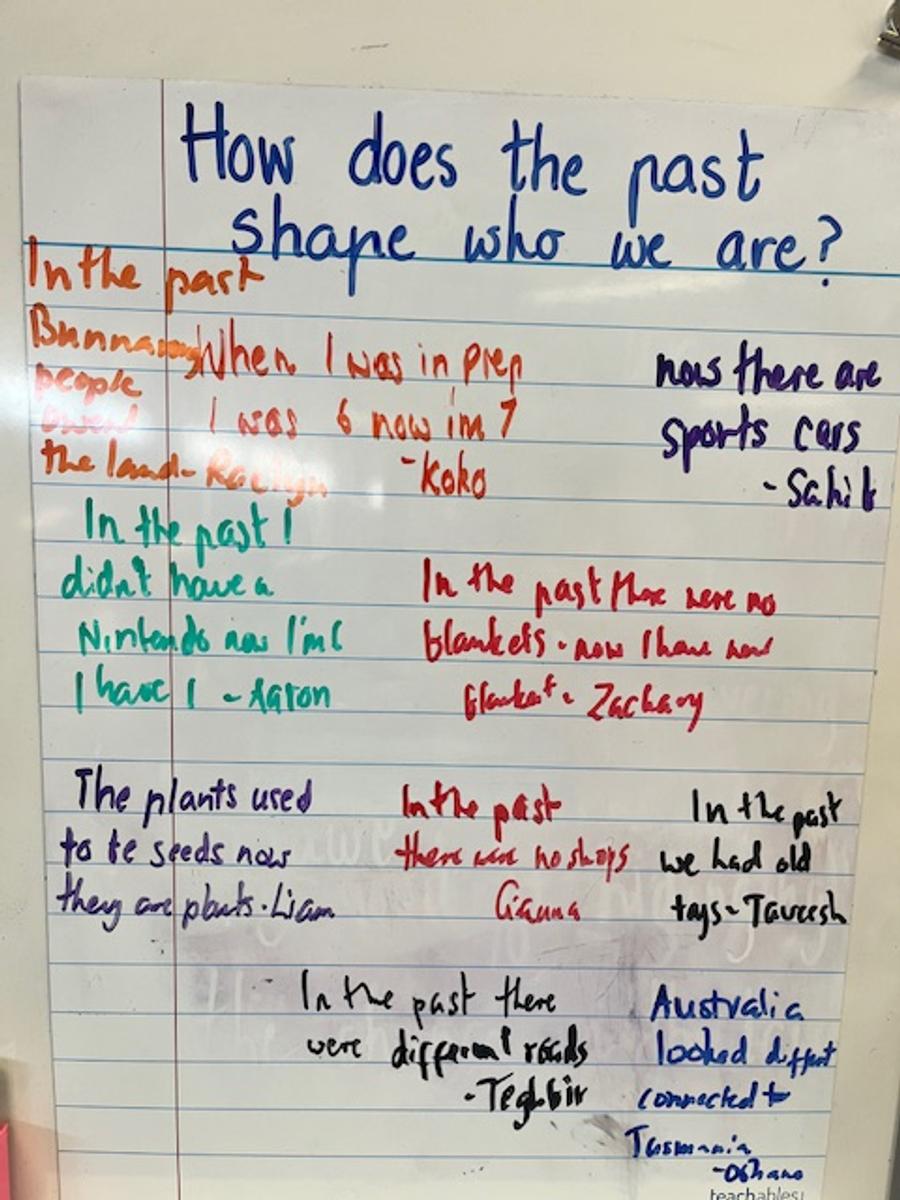 How does the past
shape who we are?
In the past
Bunnarong
people
owend
the land - Raelyn
When I was in prep
I was 6 now im 7
- Koko
now there are
sports cars
- Sahib
In the past I
didn't have a
Nintendo now I'm 6
I have 1 - Aaron
In the past there were no
blankets. now I have
blanket - Zachary
The plants used
to be seeds now
they are plants. Liam
In the past
there were no shops
Gianna
In the past
we had old
toys - Taveesh
In the past there
were different roads
- Teghbir
Australia
looked
connected to
Tasmania
teachables!